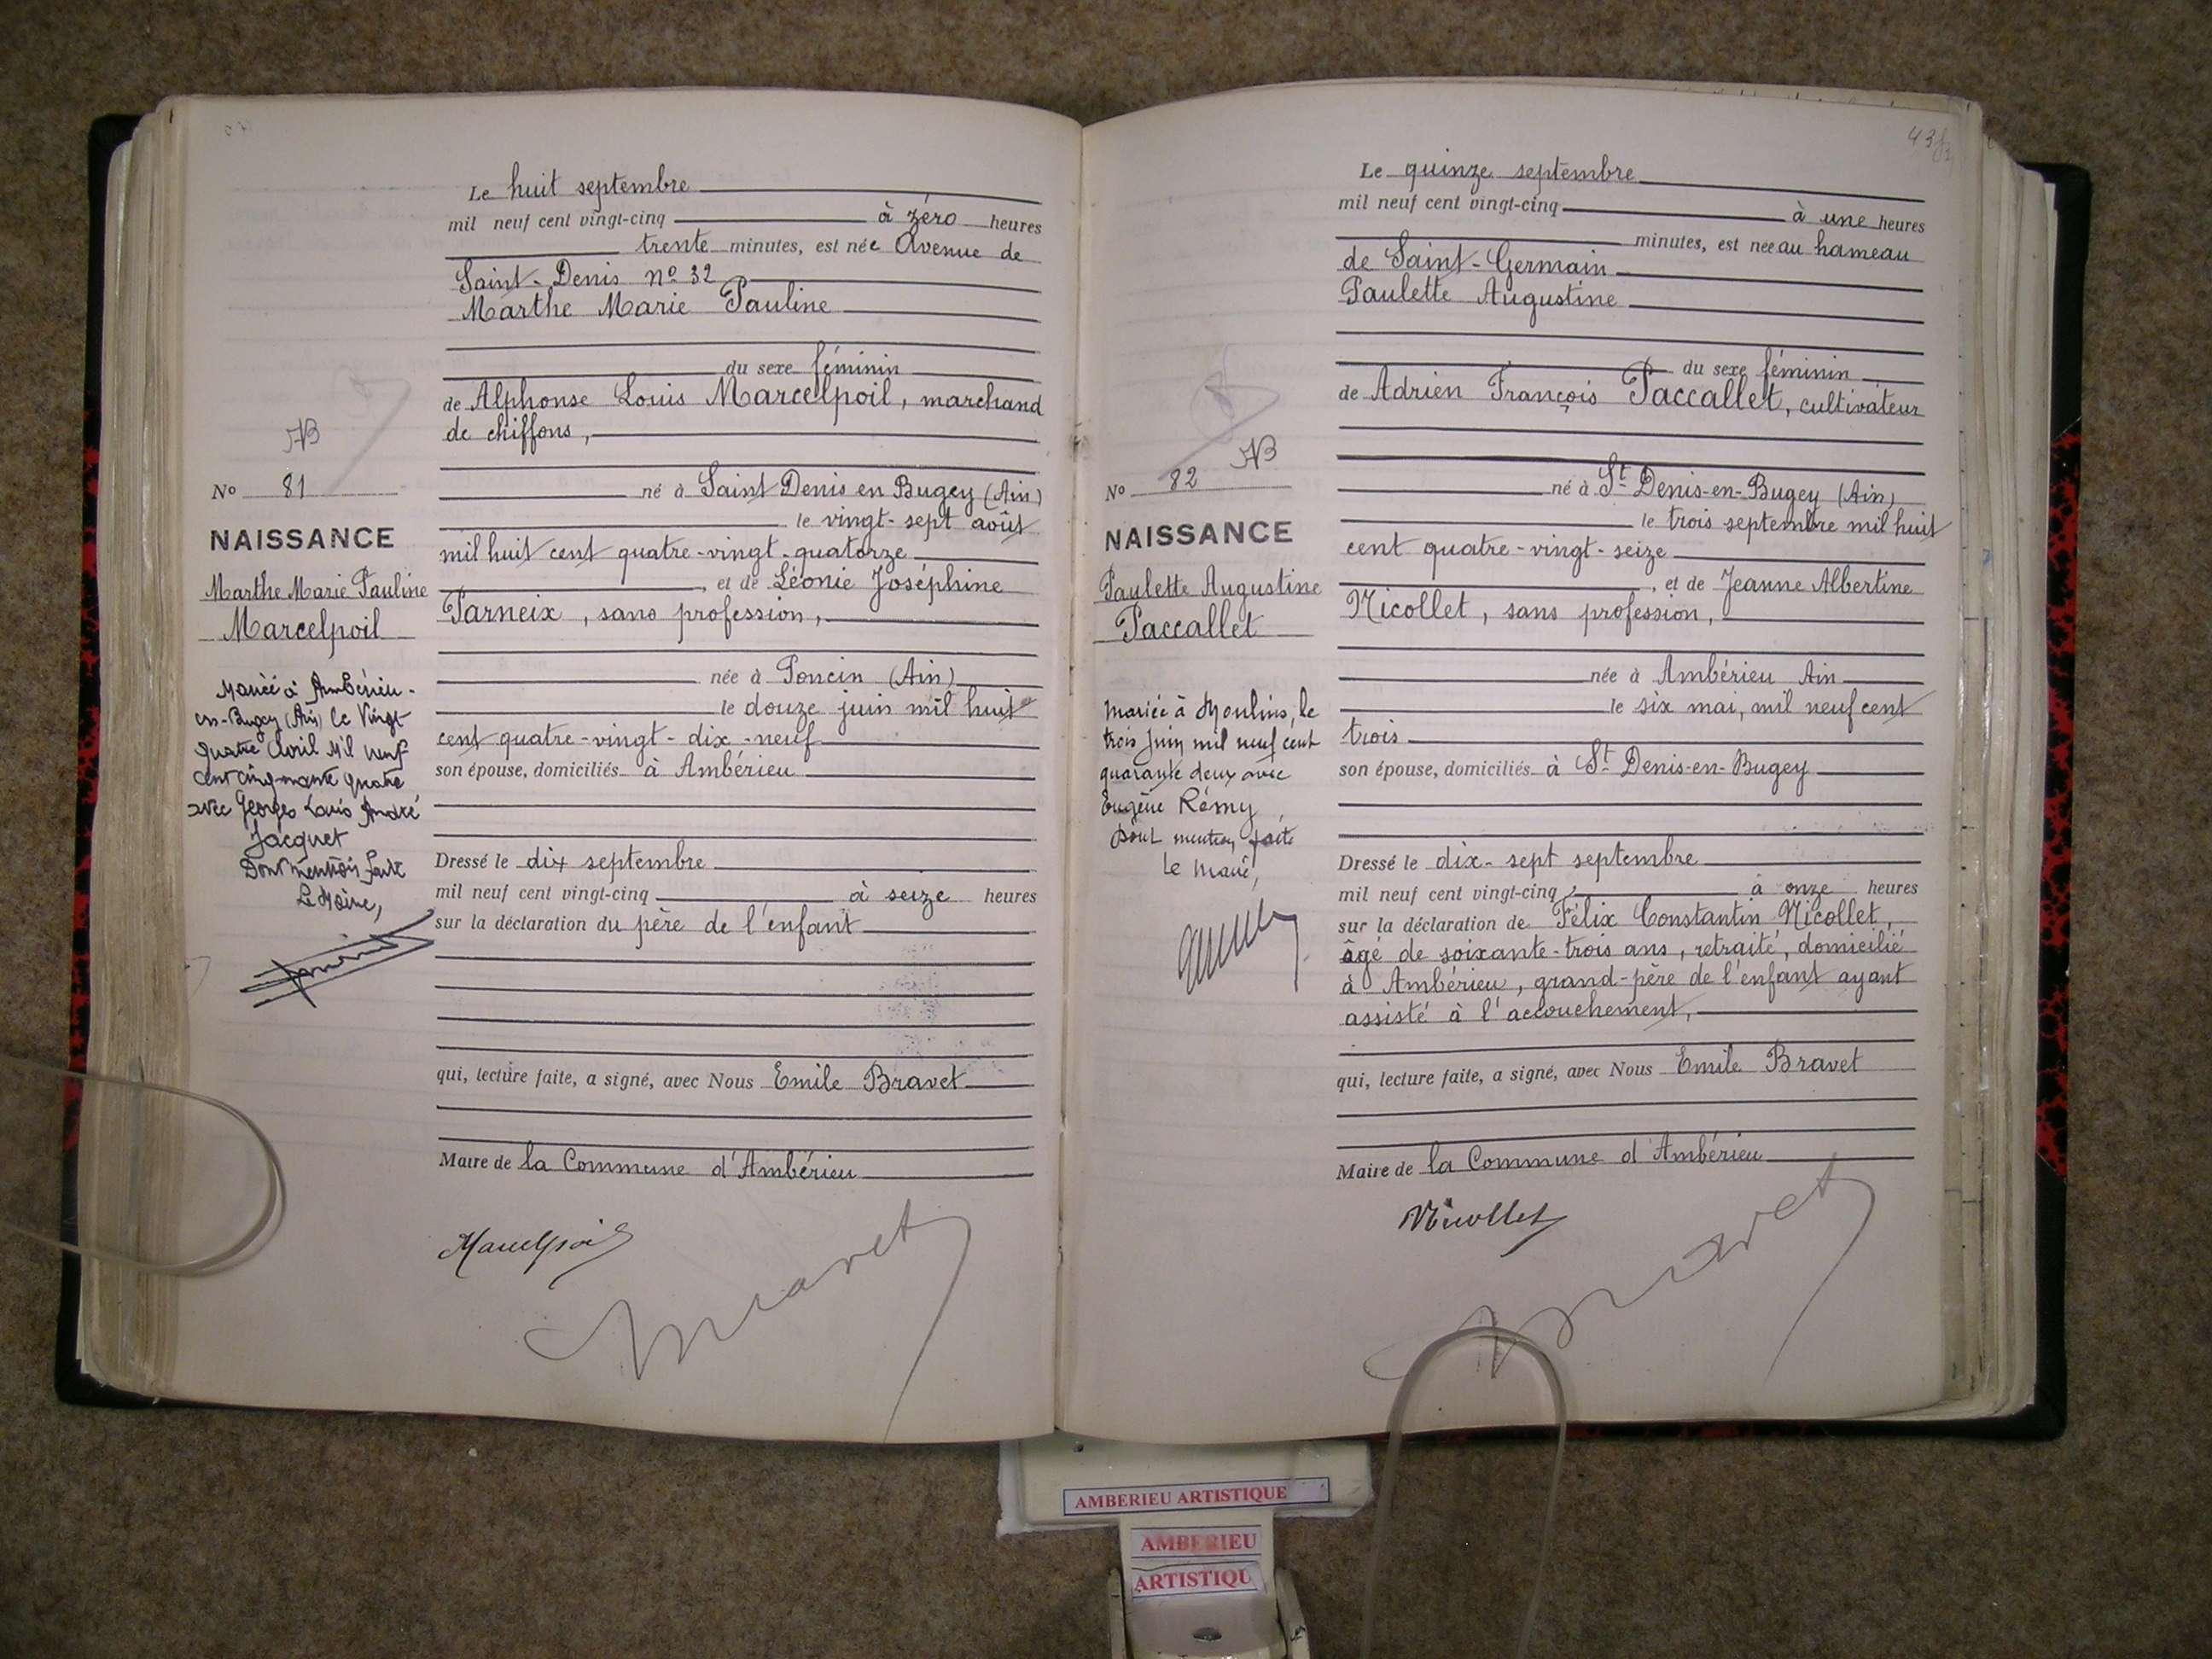 Le huit septembre
mil neuf cent vingt-cinq à zéro heures
trente minutes, est née Avenue de
Saint-Denis nº 32
Marthe Marie Pauline
du sexe féminin
de Alphonse Louis Marcelpoil, marchand
de chiffons,
né à Saint Denis en Bugey (Ain)
le vingt-sept août
mil huit cent quatre-vingt-quatorze
, et de Léonie Joséphine
Parneix, sans profession,
née à Poncin (Ain)
le douze juin mil huit
cent quatre-vingt-dix-neuf
son épouse, domiciliés à Ambérieu
Dressé le dix septembre
mil neuf cent vingt-cinq à seize heures
sur la déclaration du père de l'enfant
qui, lecture faite, a signé, avec Nous Emile Bravet
Maire de la Commune d'Ambérieu
Marcelpoil
Bravet
NB
No 81
NAISSANCE
Marthe Marie Pauline
Marcelpoil
Mariée à Ambérieu-
en-Bugey (Ain) le Vingt
quatre Avril Mil neuf
cent cinquante quatre
avec Georges Louis André
Jacquet
Dont mention faite
Le Maire,
43
Le quinze septembre
mil neuf cent vingt-cinq à une heures
minutes, est née au hameau
de Saint-Germain
Paulette Augustine
du sexe féminin
de Adrien François Paccallet, cultivateur
né à St Denis-en-Bugey (Ain)
le trois septembre mil huit
cent quatre-vingt-seize
, et de Jeanne Albertine
Nicollet, sans profession,
née à Ambérieu Ain
le six mai, mil neuf cent
trois
son épouse, domiciliés à St Denis-en-Bugey
Dressé le dix-sept septembre
mil neuf cent vingt-cinq, à onze heures
sur la déclaration de Félix Constantin Nicollet,
âgé de soixante-trois ans, retraité, domicilié
à Ambérieu, grand-père de l'enfant ayant
assisté à l'accouchement,
qui, lecture faite, a signé, avec Nous Emile Bravet
Maire de la Commune d'Ambérieu
Nicollet
Bravet
NB
No 82
NAISSANCE
Paulette Augustine
Paccallet
Mariée à Moulins, le
trois Juin mil neuf cent
quarante deux avec
Eugène Rémy
Dont mention faite
Le Maire,
AMBERIEU ARTISTIQUE
AMBERIEU
ARTISTIQU